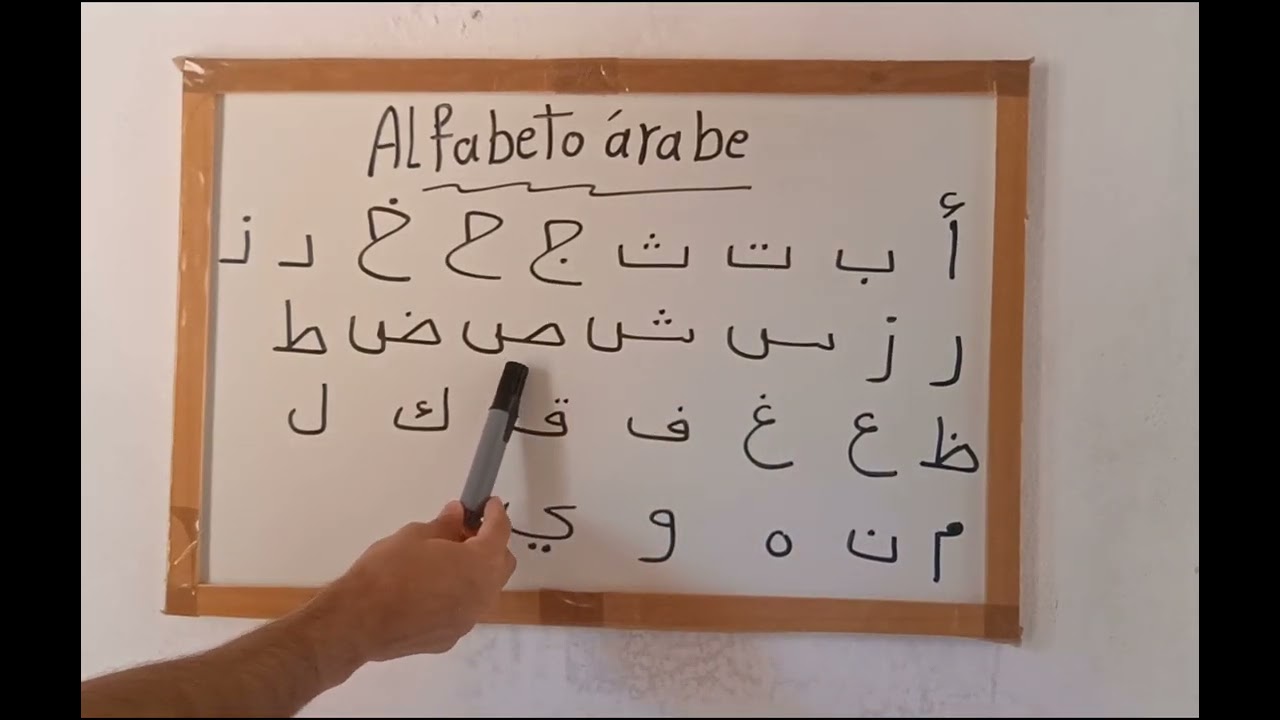 Alfabeto árabe
أ ب ت ث ج ح خ د ذ
ر ز س ش ص ض ط
ظ ع غ ف ق ك ل
م ن ه و ي